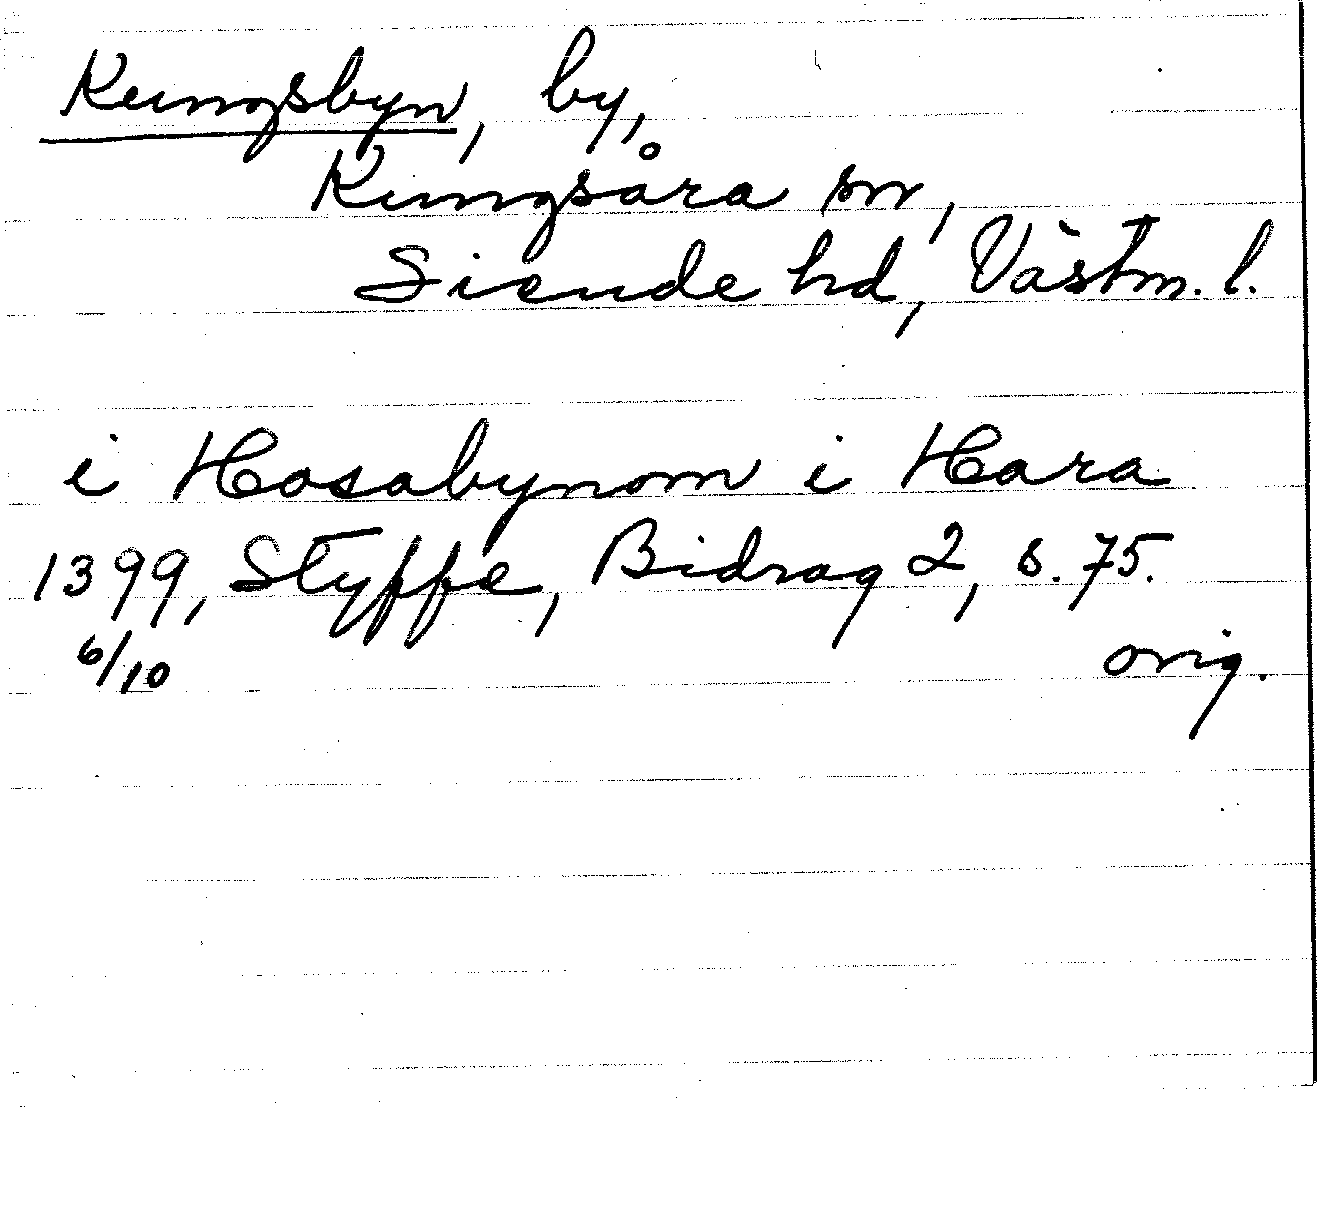 Kungsbyn, by,
Kungsåra sn,
Siende hd, Västm. l.
i Hosabynom i Hara
1399, Styffe, Bidrag 2, s. 75.
6/10 orig.